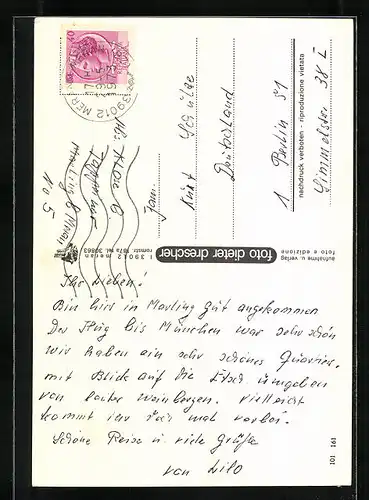 Ihr Lieben!
Bin hier in Marling gut angekommen
Der Flug bis München war sehr schön
wir haben ein sehr schönes Quartier.
mit Blick auf die Etsch umgeben
von lauter Weinbergen. Vielleicht
kommt ihr da mal vorbei.
Schöne Reise u. viele Grüße
von Lilo
Fam.
Kurt Schulze
Deutschland
1 Berlin 51
38 I
39012 MER
Marling b/Meran
No 5
foto dieter drescher
I 39012 meran
romstr. 187a tel. 30863
aufnahme u. verlag
foto e edizione
nachdruck verboten - riproduzione vietata
101 161